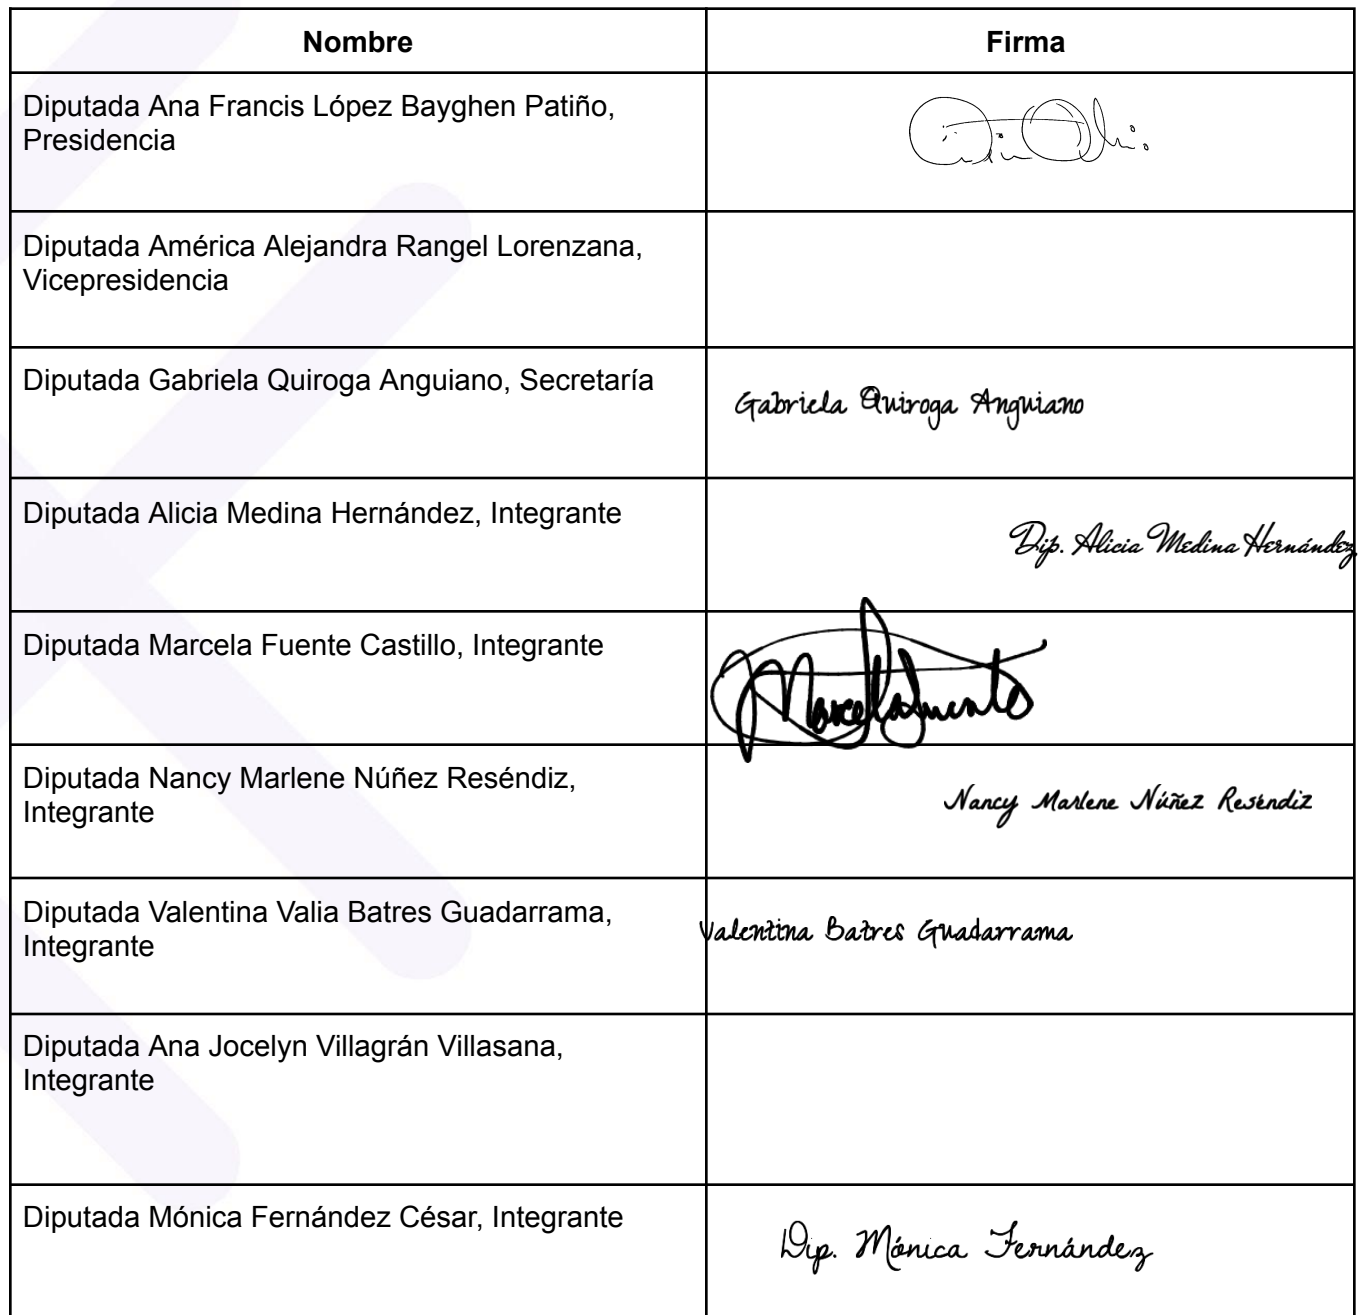 Nombre
Firma
Diputada Ana Francis López Bayghen Patiño,
Presidencia
Diputada América Alejandra Rangel Lorenzana,
Vicepresidencia
Diputada Gabriela Quiroga Anguiano, Secretaría
Gabriela Quiroga Anguiano
Diputada Alicia Medina Hernández, Integrante
Dip. Alicia Medina Hernández
Diputada Marcela Fuente Castillo, Integrante
Marcela Fuente
Diputada Nancy Marlene Núñez Reséndiz,
Integrante
Nancy Marlene Núñez Reséndiz
Diputada Valentina Valia Batres Guadarrama,
Integrante
Valentina Batres Guadarrama
Diputada Ana Jocelyn Villagrán Villasana,
Integrante
Diputada Mónica Fernández César, Integrante
Dip. Mónica Fernández